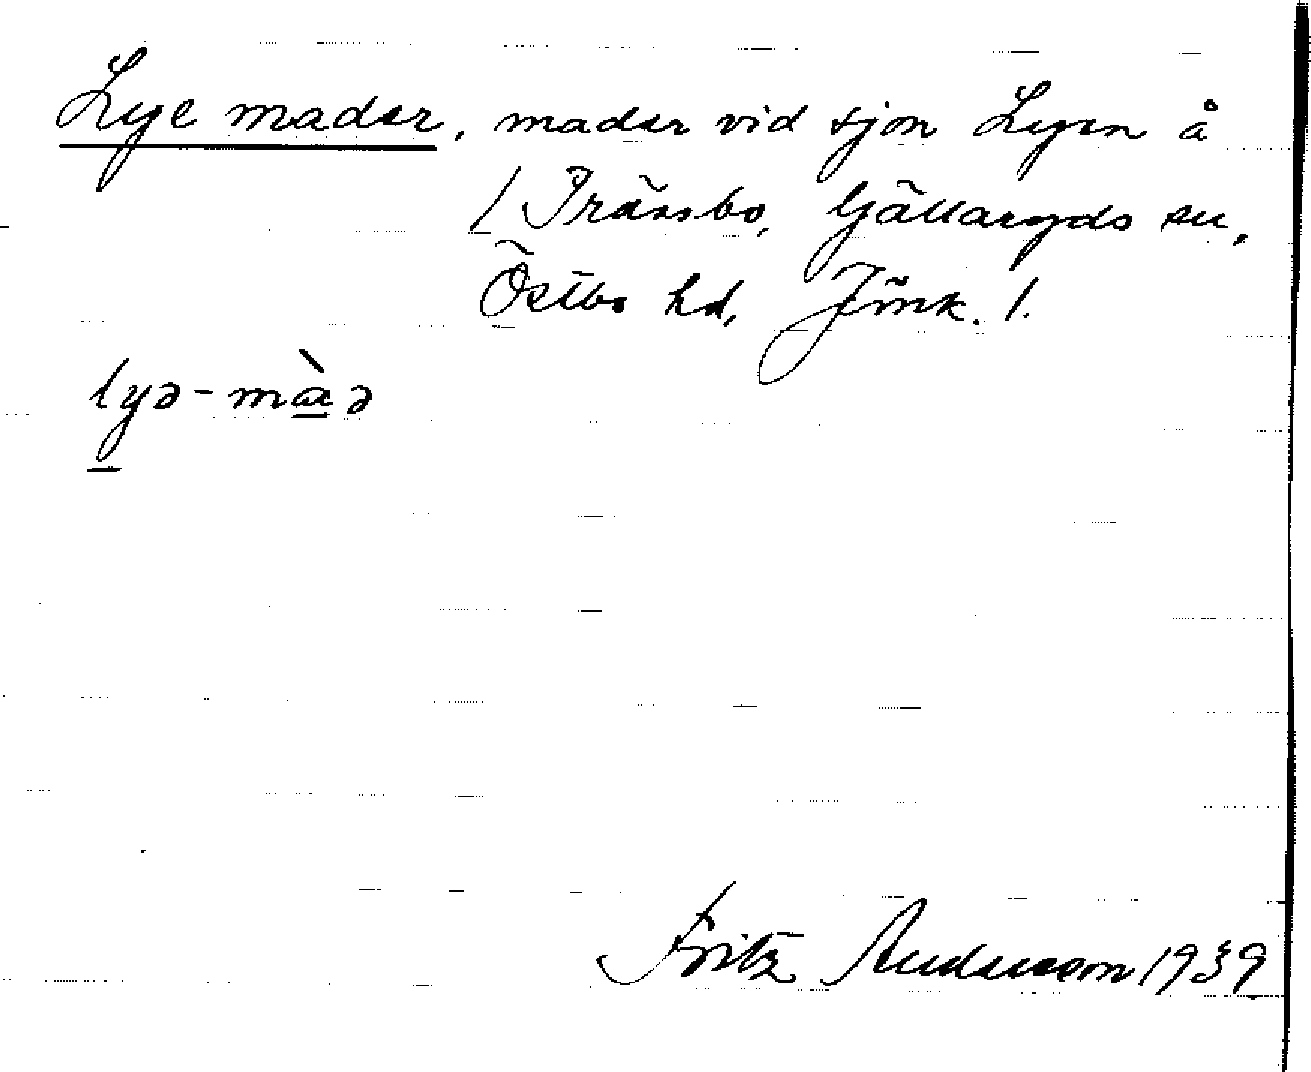 Lye mader, mader vid sjön Lyen å
/ Prässbo, Gällaryds sn,
Östbo hd, Jönk. /.
lyə-màə
Fritz Andersson 1939